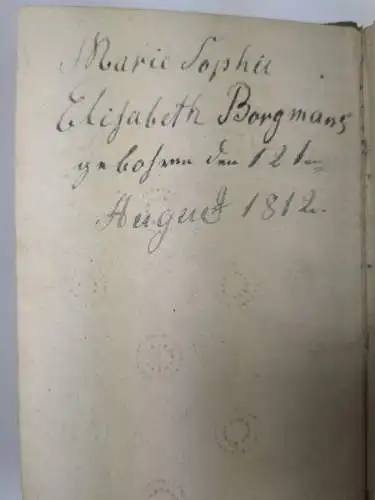 Marie Sophie
Elisabeth Borgmans
gebohren den 12ten
August 1812.